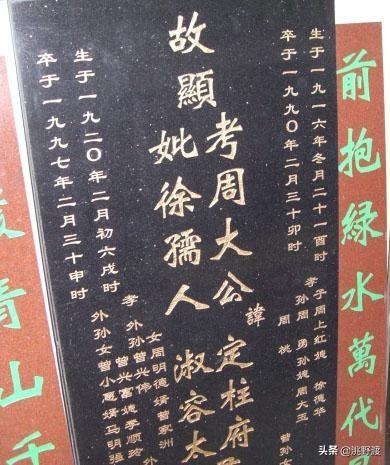 前抱綠水萬代
生于一九一六年冬月二十一酉时
卒于一九九〇年二月三十卯时
孝子周上紅媳徐德华
孙周勇孙媳周大玉
周桃
曾孙
故顯
考周大公諱定柱府
妣徐孺人淑容太
女周明德婿曾家洲
孝外孙曾兴伟
外孙曾兴富媳李顺
外孙女曾小惠婿马明
生于一九二〇年二月初六戌时
卒于一九九七年二月三十申时
青山千
头条 @洮野渡